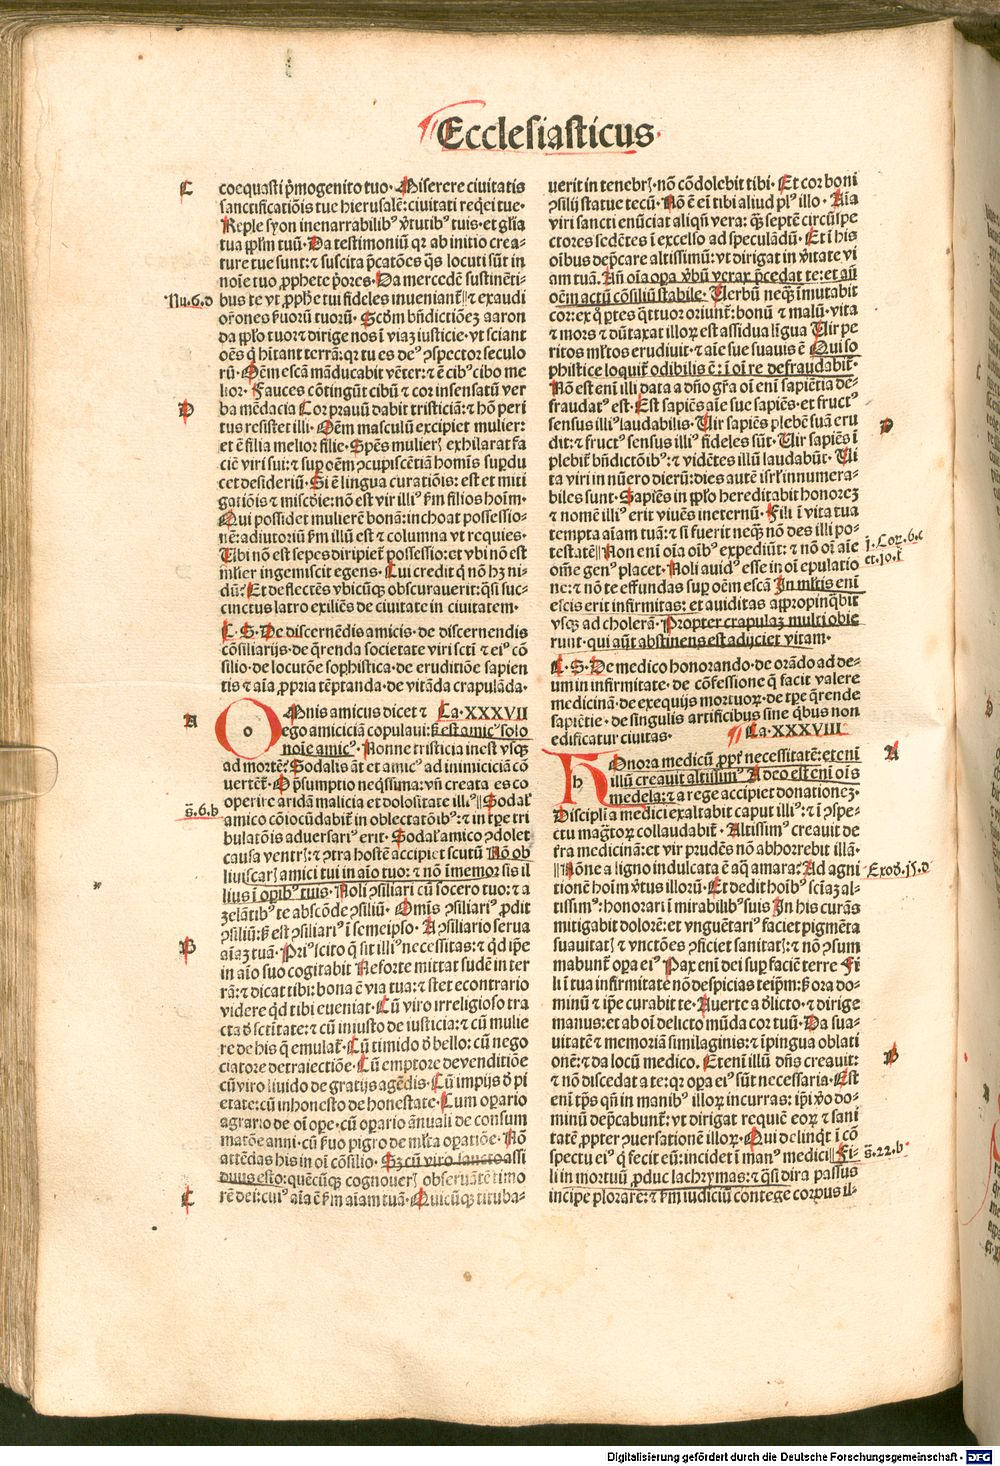 Ecclesiasticus
C
coequasti p̄mogenito tuo. Miserere ciuitatis
sanctificatiōis tue hierusalē: ciuitati reqͥei tue.
Reple syon inenarrabilibꝰ v̄tutibꝰ tuis. et gl̄ia
tua pp̄lm tuū. Da testimoniū qr ab initio crea-
ture tue sunt: ⁊ suscita p̄catōes q̄s locuti sūt in
noīe tuo ꝓphete p̄ores. Da mercedē sustinēti-
Nu.6.d
bus te vt ꝓphe tui fideles inueniant᷑ ⁊ exaudi
or̄ones ẜuorū tuorū. Scd̄m bn̄dictionē aaron
da pp̄lo tuo ⁊ dirige nos ī viaꝫ iusticie. vt sciant
oēs q̄ hītant terrā: qr tu es deꝰ ꝯspector seculo
rū. Oēm escā māducabit vēter: ⁊ ē cibꝰ cibo me
lior. Fauces cōtingūt cibū ⁊ cor insensatū ver
D
ba mēdacia Cor prauū dabit tristiciā: ⁊ hō peri
tus resistet illi. Oēm masculū excipiet mulier:
et ē filia melior filie. Spēs mulierꝭ exhilarat fa
ciē viri sui: ⁊ sup oēm ꝯcupiscētiā homīs supdu
cet desideriū. Si ē lingua curatiōis: est et miti
gatiōis ⁊ misc̄die: nō est vir illiꝰ ẜm filios hoīm.
Qui possidet mulierē bonā: inchoat possessio-
nē: adiutoriū ẜm illū est ⁊ columna vt requies.
Ubi nō est sepes diripiet᷑ possessio: et vbi nō est
ml̄ier ingemiscit egens. Cui credit q̄ nō hꝫ ni-
dū? Et deflectēs vbicūqꝫ obscurauerit: q̄si suc-
cinctus latro exiliēs de ciuitate in ciuitatem.
C. S. De discernēdis amicis. de discernendis
cōsiliarijs. de q̄renda societate viri scti ⁊ eiꝰ cō
silio. de locutōe sophistica. de eruditiōe sapien
tis ⁊ aīa ꝓpria tēptanda. de vitāda crapulāda.
A
Omnis amicus dicet ⁊ Ca. XXXVII
ego amiciciā copulaui: ẜ est amicꝰ solo
noīe amicꝰ. Nonne tristicia inest vsqꝫ
ad mortē? Sodalis āt et amicꝰ ad inimiciciā cō
uertēt᷑. O p̄sumptio neq̄ssima: vn̄ creata es co
operire aridā malicia et dolositate illiꝰ Sodal᷑
s.6.b
amico cōiocūdabit᷑ in oblectatōibꝰ: ⁊ in tp̄e tri
bulatōis aduersariꝰ erit. Sodal᷑ amico ꝯdolet
causa ventrꝭ: ⁊ ꝯtra hostē accipiet scutū Nō ob
liuiscarꝭ amici tui in aīo tuo: ⁊ nō īmemor sis il
liꝰ ī opibꝰ tuis. Noli ꝯsiliari cū socero tuo: ⁊ a
zelātibꝰ te abscōde ꝯsiliū. Omīs ꝯsiliariꝰ ꝓdit
ꝯsiliū: ẜ est ꝯsiliariꝰ ī semeipso. A ꝯsiliario serua
B
aīaꝫ tuā. Priꝰ scito q̄ sit illiꝰ necessitas: ⁊ qd̄ ip̄e
in aīo suo cogitabit Ne forte mittat sudē in ter
rā: ⁊ dicat tibi: bona ē via tua: ⁊ stet econtrario
videre qd̄ tibi eueniat. Cū viro irreligioso tra
cta d̄ sctitate: ⁊ cū iniusto de iusticia: ⁊ cū mulie
re de his q̄ emulat᷑. Cū timido d̄ bello: cū nego
ciatore de traiectiōe. Cū emptore de venditiōe
cū viro liuido de gratijs agēdis. Cū impijs d̄ pi
etate: cū inhonesto de honestate. Cum opario
agrario de oī ope. cū opario ānuali de consum
matōe anni. cū ẜuo pigro de ml̄ta opatiōe. Nō
attēdas his in oī cōsilio. Sꝫ cū viro sancto assi
duus esto: quēcūqꝫ cognouerꝭ obseruātē timo
C
rē dei: cuiꝰ aīa ē ẜm aīam tuā. Quicūqꝫ tituba-
uerit in tenebrꝭ. nō cōdolebit tibi. Et cor boni
ꝯsilij statue tecū. Nō ē eī tibi aliud plꝰ illo. Aīa
viri sancti enūciat aliqn̄ vera: qͣꝫ septē circūspe
ctores sedētes ī excelso ad speculādū. Et ī his
oībus dep̄care altissimū: vt dirigat in v̄itate vi
am tuā. An̄ oīa opa v̄bū verax p̄cedat te: et an̄
oēm actū cōsiliū stabile. Verbū neqͣꝫ īmutabit
cor: ex q̄ ptes qͣttuor oriunt᷑: bonū ⁊ malū. vita
⁊ mors ⁊ dn̄taxat illoꝝ est assidua līgua Vir pe
ritos ml̄tos erudiuit. ⁊ aīe sue suauis ē Qui so
phistice loquit᷑ odibilis ē: ī oī re defraudabit᷑.
Nō est enī illi data a dn̄o gr̄a oī enī sapiētia de-
fraudatꝰ est. Est sapiēs aīe sue sapiēs. et fructꝰ
D
sensus illiꝰ laudabilis. Vir sapiēs plebē suā eru
dit: ⁊ fructꝰ sensus illiꝰ fideles sūt. Vir sapiēs ī
plebit᷑ bn̄dictōibꝰ: ⁊ vidētes illū laudabūt. Vi
ta viri in nūero dierū: dies autē isrl̄ innumera-
biles sunt. Sapiēs in pp̄lo hereditabit honoreꝫ
⁊ nomē illiꝰ erit viuēs ineternū. Fili ī vita tua
tempta aīam tuā: ⁊ si fuerit neqͣꝫ nō des illi po-
testatē Non enī oīa oībꝰ expediūt: ⁊ nō oī aīe
j. Cor. 6. c
et. 10. f
om̄e genꝰ placet. Noli auidꝰ esse in oī epulatio
ne: ⁊ nō te effundas sup oēm escā In ml̄tis enī
escis erit infirmitas: et auiditas appropinq̄bit
vsqꝫ ad cholerā. Propter crapulaꝫ multi obie
runt. qui aūt abstinens est adijciet vitam.
C. S. De medico honorando. de orādo ad de-
um in infirmitate. de cōfessione q̄ facit valere
medicinā. de exequijs mortuoꝝ. de tp̄e q̄rende
sapiētie. de singulis artificibus sine q̄bus non
edificatur ciuitas. Ca. XXXVIII
A
Honora medicū ꝓpt᷑ necessitatē: etenī
illū creauit altissimꝰ A deo est enī oīs
medela: ⁊ a rege accipiet donationeꝫ.
Disciplīa medici exaltabit caput illiꝰ: ⁊ ī ꝯspe-
ctu maḡtoꝝ collaudabit᷑. Altissimꝰ creauit de
t̄ra medicinā: et vir prudēs nō abhorrebit illā.
Nōne a ligno indulcata ē aq̄ amara? Ad agni
Exod. 15. d
tionē hoīm v̄tus illorū. Et dedit hoībꝰ sciaꝫ al-
tissimꝰ: honorari ī mirabilibꝰ suis In his curās
mitigabit dolorē: et vnguētariꝰ faciet pigmēta
suauitatꝭ ⁊ vnctōes ꝯficiet sanitatꝭ: ⁊ nō ꝯsum
mabunt᷑ opa eiꝰ Pax enī dei sup faciē terre Fi
li ī tua infirmitate nō despicias teip̄m: ẜ ora do-
minū ⁊ ip̄e curabit te. Auerte a d̄licto ⁊ dirige
manus: et ab oī delicto mūda cor tuū. Da sua-
uitatē ⁊ memoriā similaginis: ⁊ īpingua oblati
B
onē: ⁊ da locū medico. Etenī illū dn̄s creauit:
⁊ nō discedat a te: qr opa eiꝰ sūt necessaria. Est
enī tp̄s qn̄ in manibꝰ illoꝝ incurras: ip̄i v̄o do-
minū dep̄cabunt᷑: vt dirigat requiē eoꝝ ⁊ sani
tatē ꝓpter ꝯuersationē illoꝝ. Qui delinq̄t ī cō
spectu eiꝰ q̄ fecit eū: incidet ī manꝰ medici Fi-
s. 22. b
li in mortuū ꝓduc lachrymas: ⁊ q̄si dira passus
incipe plorare: ⁊ ẜm iudiciū contege corpus il-
Digitalisierung gefördert durch die Deutsche Forschungsgemeinschaft - DFG